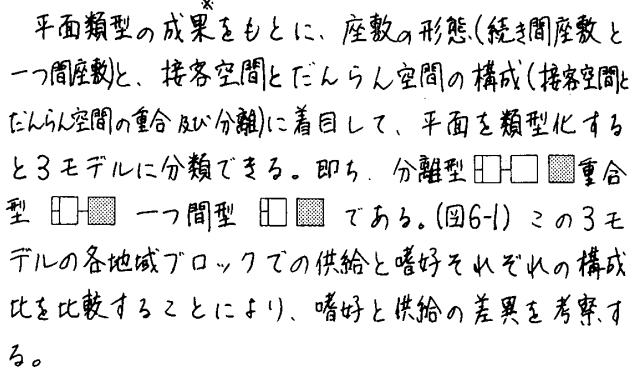 ※
平面類型の成果をもとに、座敷の形態(続き間座敷と
一つ間座敷)と、接客空間とだんらん空間の構成(接客空間と
だんらん空間の重合及び分離)に着目して、平面を類型化する
と3モデルに分類できる。即ち、分離型 重合
型 一つ間型 である。(図6-1) この3モ
デルの各地域ブロックでの供給と嗜好それぞれの構成
比を比較することにより、嗜好と供給の差異を考察す
る。